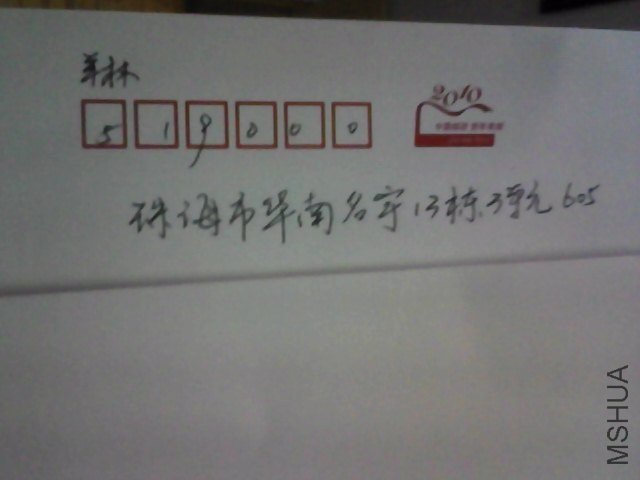 519000
2010
珠海市华南名宇13栋3单元605
MSHUA